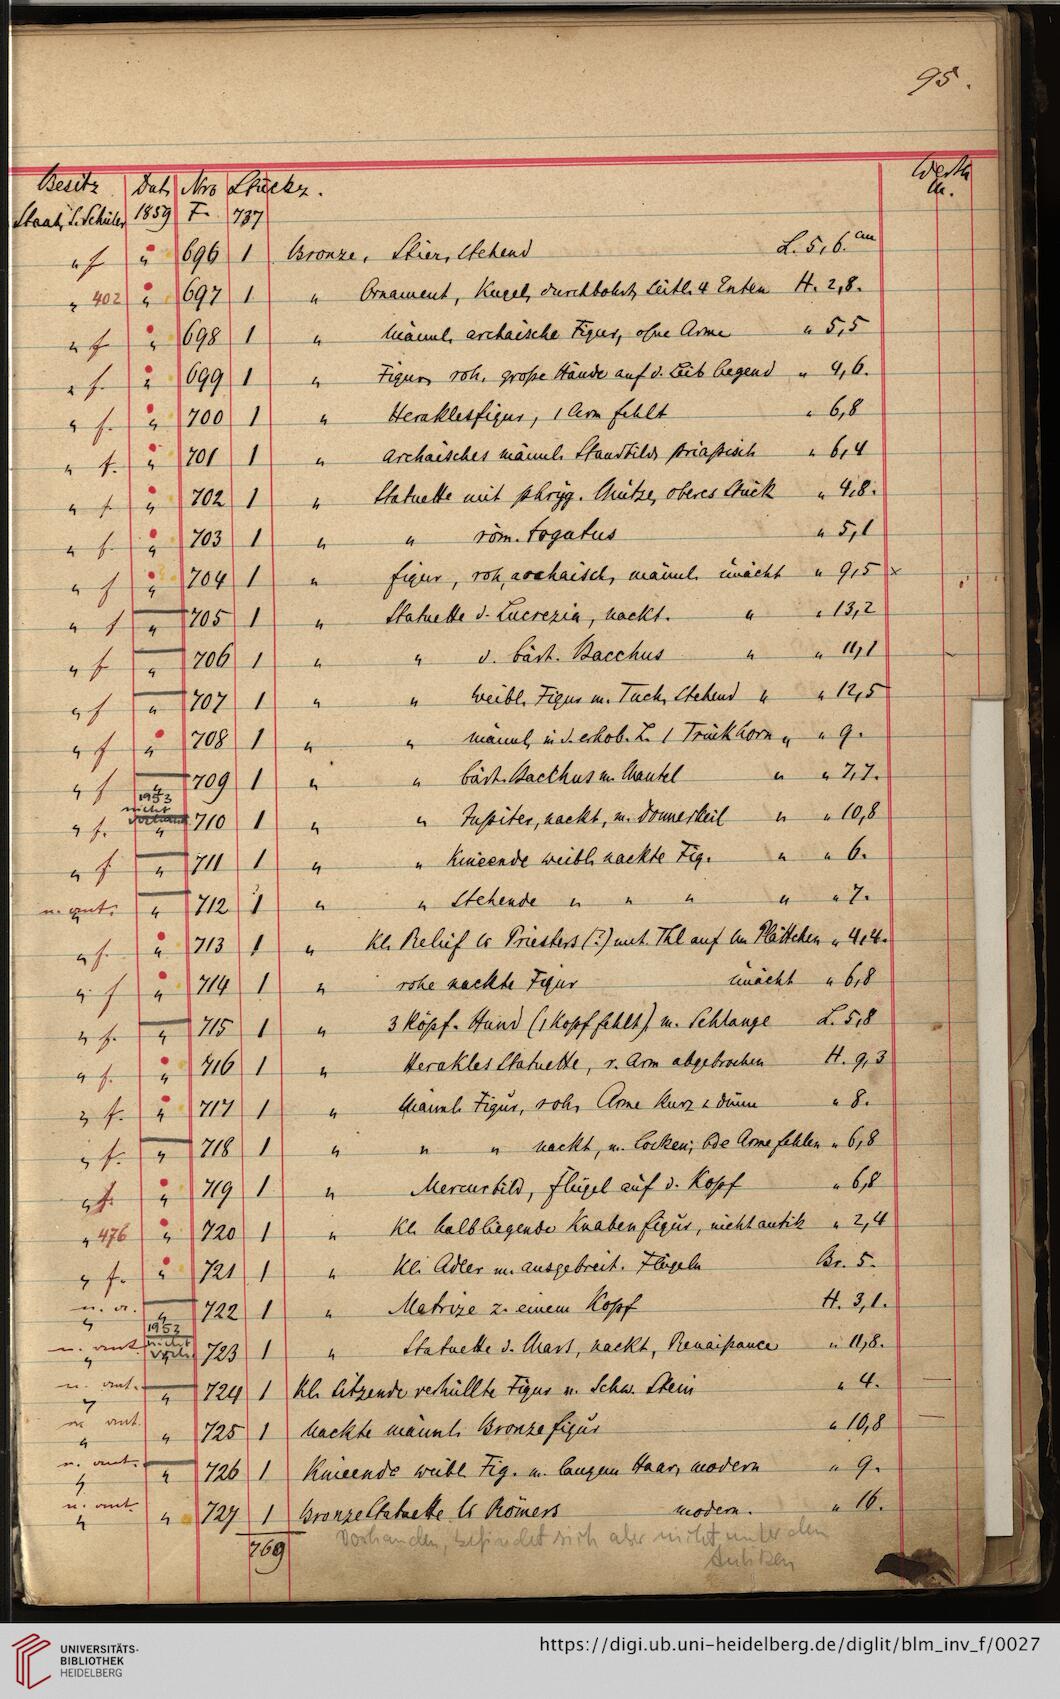 95.
Besitz Dat. Nro Stückz. Werth
M.
Staat, S. Schüler 1859 F. 737
" f " 696 1 Bronze, Stier, stehend L. 5,6. cm
" 402 " 697 1 " Ornament, Kugel, durchbohrt, seitl. 4 Enten H. 2,8.
" f " 698 1 " Männl. archaische Figur, ohne Arme " 5,5
" f. " 699 1 " Figur, roh, große Hände auf d. Leib legend " 4,6.
" f. " 700 1 " Heraklesfigur, 1 Arm fehlt " 6,8
" f. " 701 1 " archaisches männl. Standbild, priapisch " 6,4
" f " 702 1 " Statuette mit phryg. Mütze, oberes Stück " 4,8.
" f. " 703 1 " " röm. Togatus " 5,1
" f " 704 1 " figur, roh, archaisch, männl. unächt " 9,5 x
" f " 705 1 " Statuette d. Lucrezia, nackt. " " 13,2
" f " 706 1 " " d. bärt. Bacchus " " 11,1
" f " 707 1 " " weibl. Figur m. Tuch, stehend " " 12,5
" f " 708 1 " " männl. in d. erhob. L. 1 Trinkhorn " " 9.
" f " 709 1 " " bärt. Bacchus m. Mantel " " 7,7.
1953
nicht
" f. " 710 1 " " Jupiter, nackt, m. Donnerkeil " " 10,8
" f " 711 1 " " Knieende weibl. nackte Fig. " " 6.
n. ant. " 712 1 " " Stehende " " " " " 7.
" f. " 713 1 " Kl. Relief Priesters (?) auf Plättchen " 4,4.
" f " 714 1 " rohe nackte Figur unächt " 6,8
" f. " 715 1 " 3 köpf. Hund (1 Kopf fehlt) m. Schlange L. 5,8
" f. " 716 1 " Herakles Statuette, r. Arm abgebrochen H. 9,3
" f. " 717 1 " Männl. Figur, roh, Arme kurz & dünn " 8.
" f. " 718 1 " " " nackt, m. Locken; bde Arme fehlen " 6,8
" f. " 719 1 " Mercurbild, Flügel auf d. Kopf " 6,8
" 476 " 720 1 " Kl. halbliegende Knabenfigur, nicht antik " 2,4
" f. " 721 1 " Kl. Adler m. ausgebreit. Flügeln Br. 5.
n. a. " " 722 1 " Matrize z. einem Kopf H. 3,1.
1953
nicht
vorh.
n. ant. " " 723 1 " Statuette d. Mars, nackt, Renaissance " 11,8.
n. ant. " " 724 1 Kl. sitzende verhüllte Figur v. Schw. Stein " 4.
n. ant. " " 725 1 Nackte männl. Bronzefigur " 10,8
n. ant. " " 726 1 Knieende weibl. Fig. m. langem Haar, modern " 9.
n. ant. " " 727 1 BronzeStatuette Römers modern. " 16.
769 Vorhanden, befindet sich aber nicht unter den
Antiken
UNIVERSITÄTS-
BIBLIOTHEK
HEIDELBERG
https://digi.ub.uni-heidelberg.de/diglit/blm_inv_f/0027